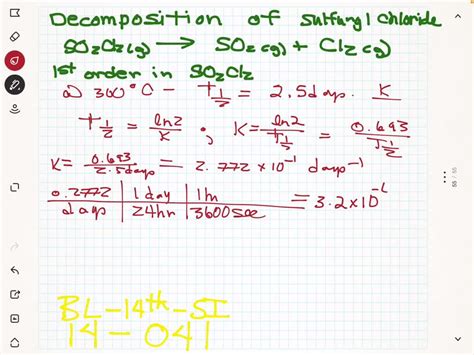 Decomposition of sulfuryl chloride
SO₂Cl₂(g) → SO₂(g) + Cl₂(g)
1st order in SO₂Cl₂
a) 300°C - t½ = 2.5 days. K
t½ = ln2/K ; K = ln2/t½ = 0.693/t½
K = 0.693/2.5 days = 2.772 × 10⁻¹ days⁻¹
0.2772/days | 1 day/24hr | 1h/3600sec = 3.2×10
BL-14th-SI
14-041